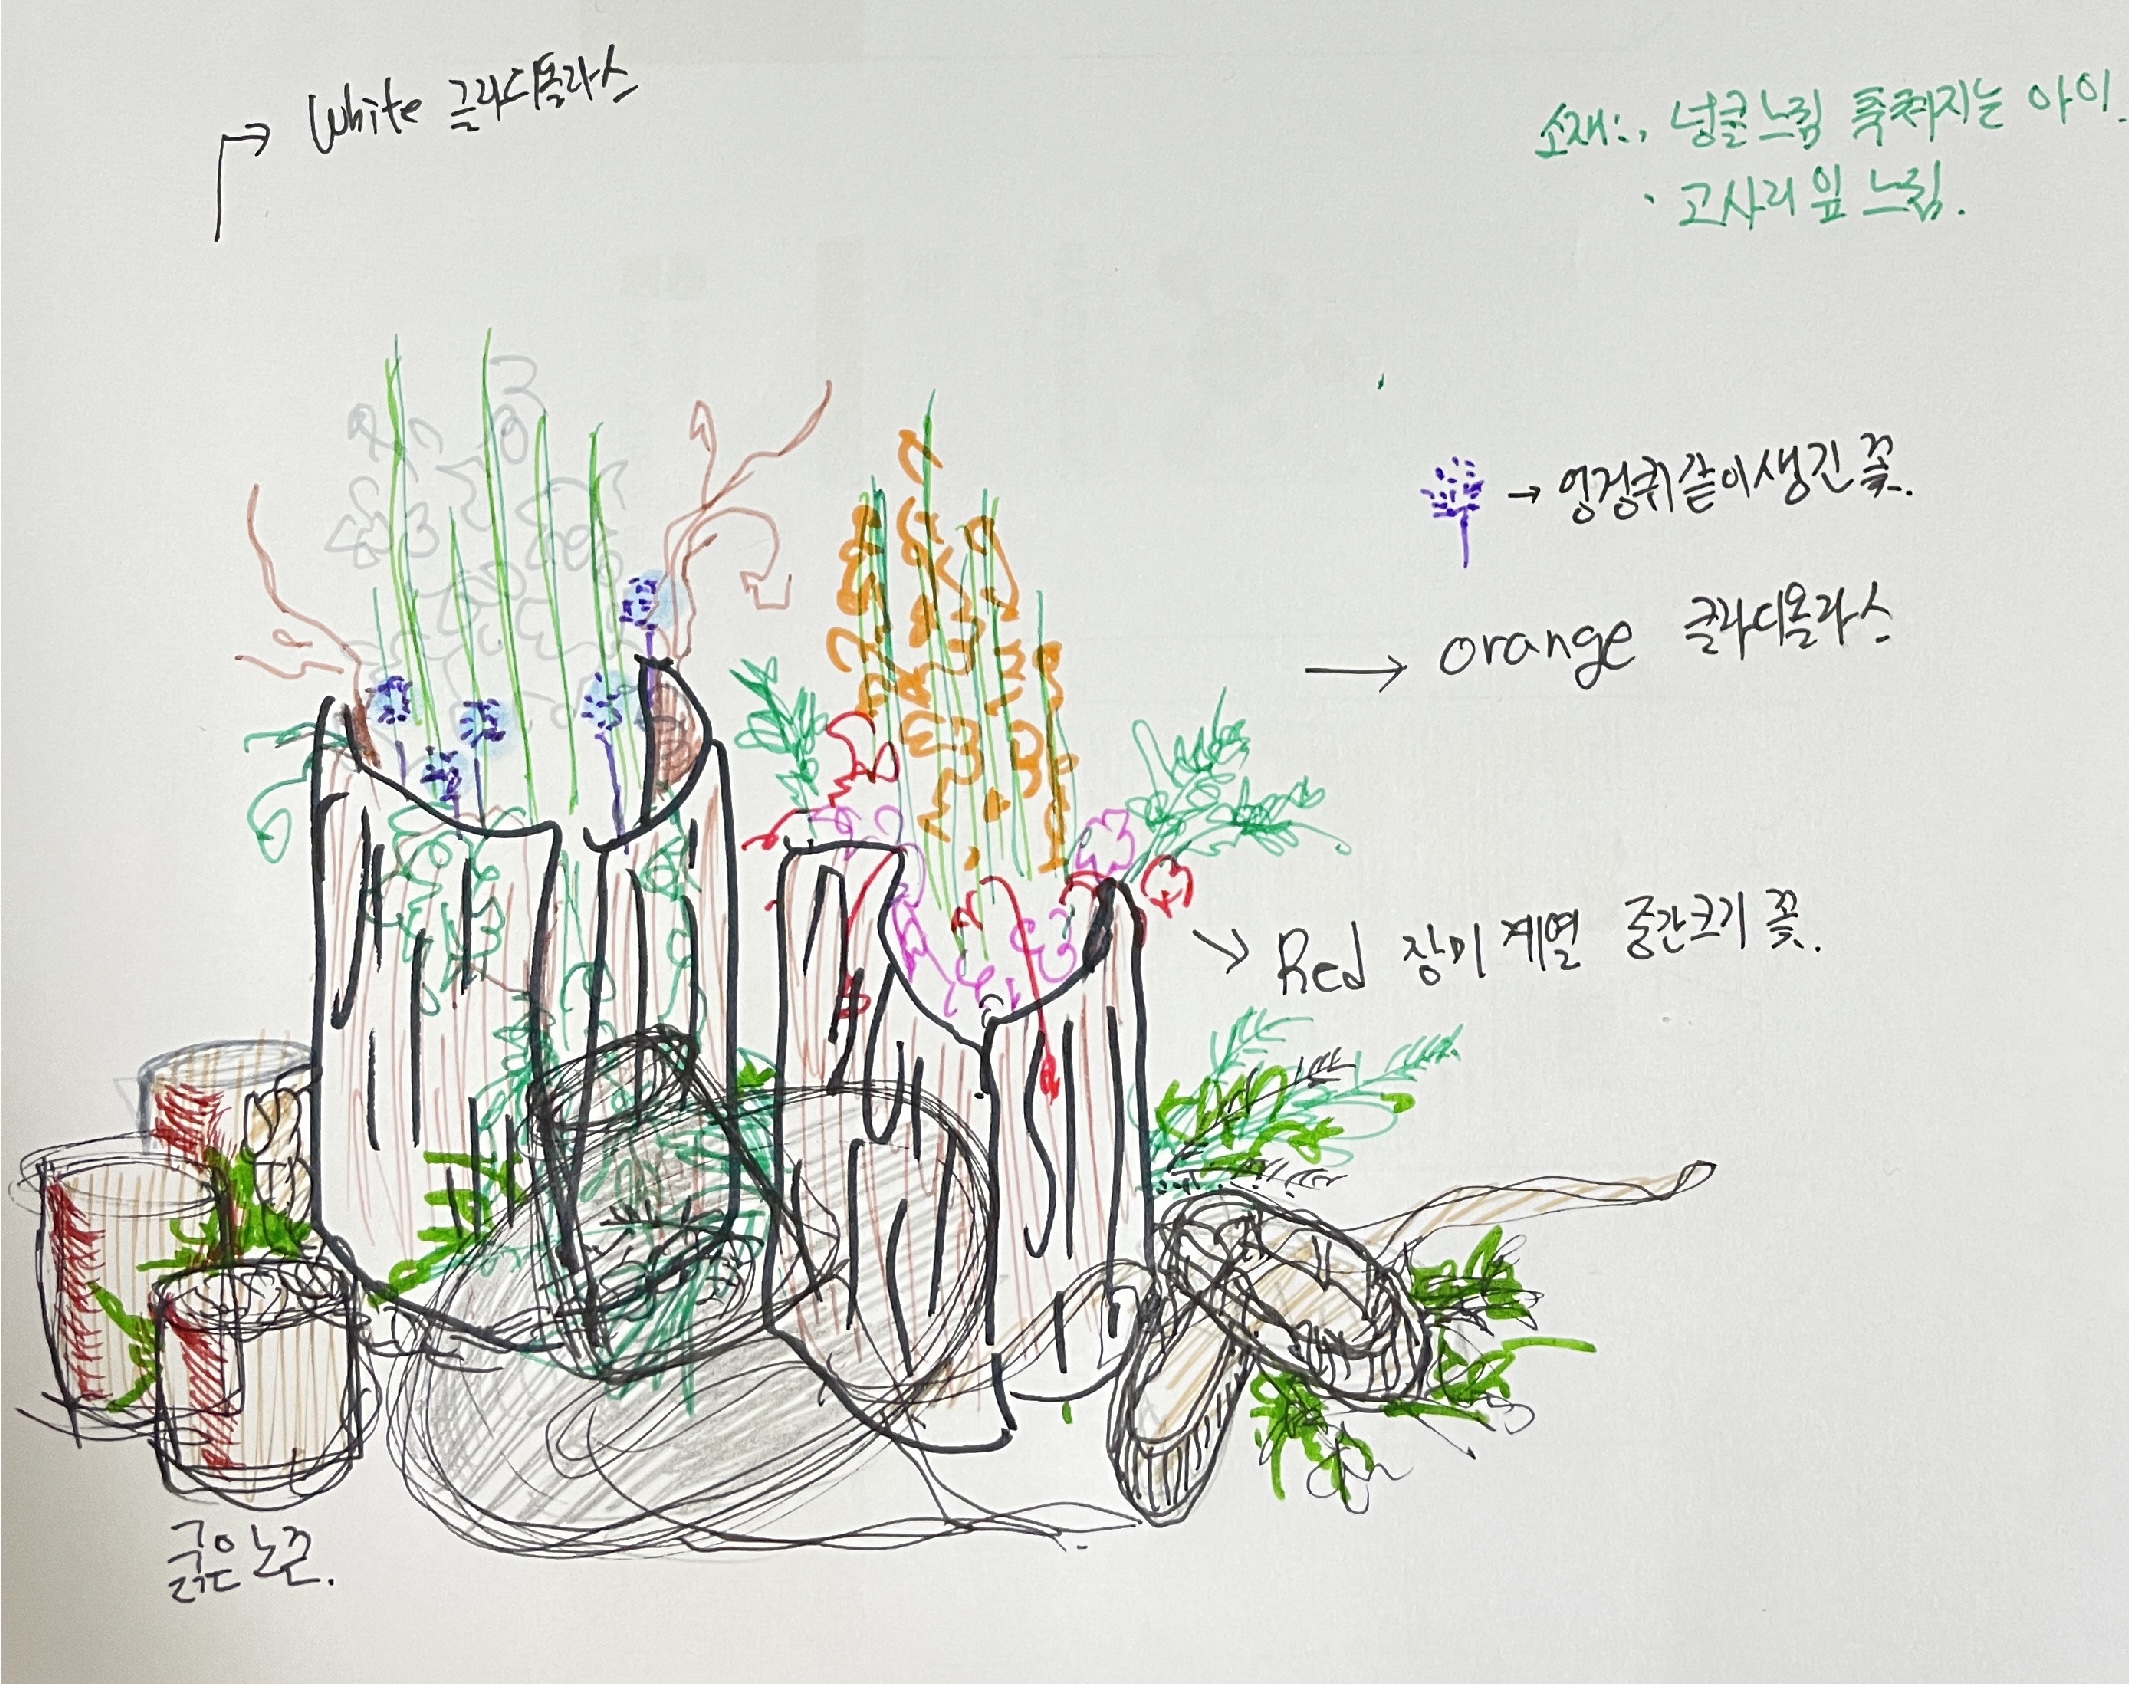 White 글라디올라스
소재:, 넝쿨느낌 축쳐지는 아이.
· 고사리 잎 느낌.
→ 엉겅퀴같이생긴 꽃.
→ orange 글라디올라스
Red 장미 계열 중간크기 꽃.
굵은